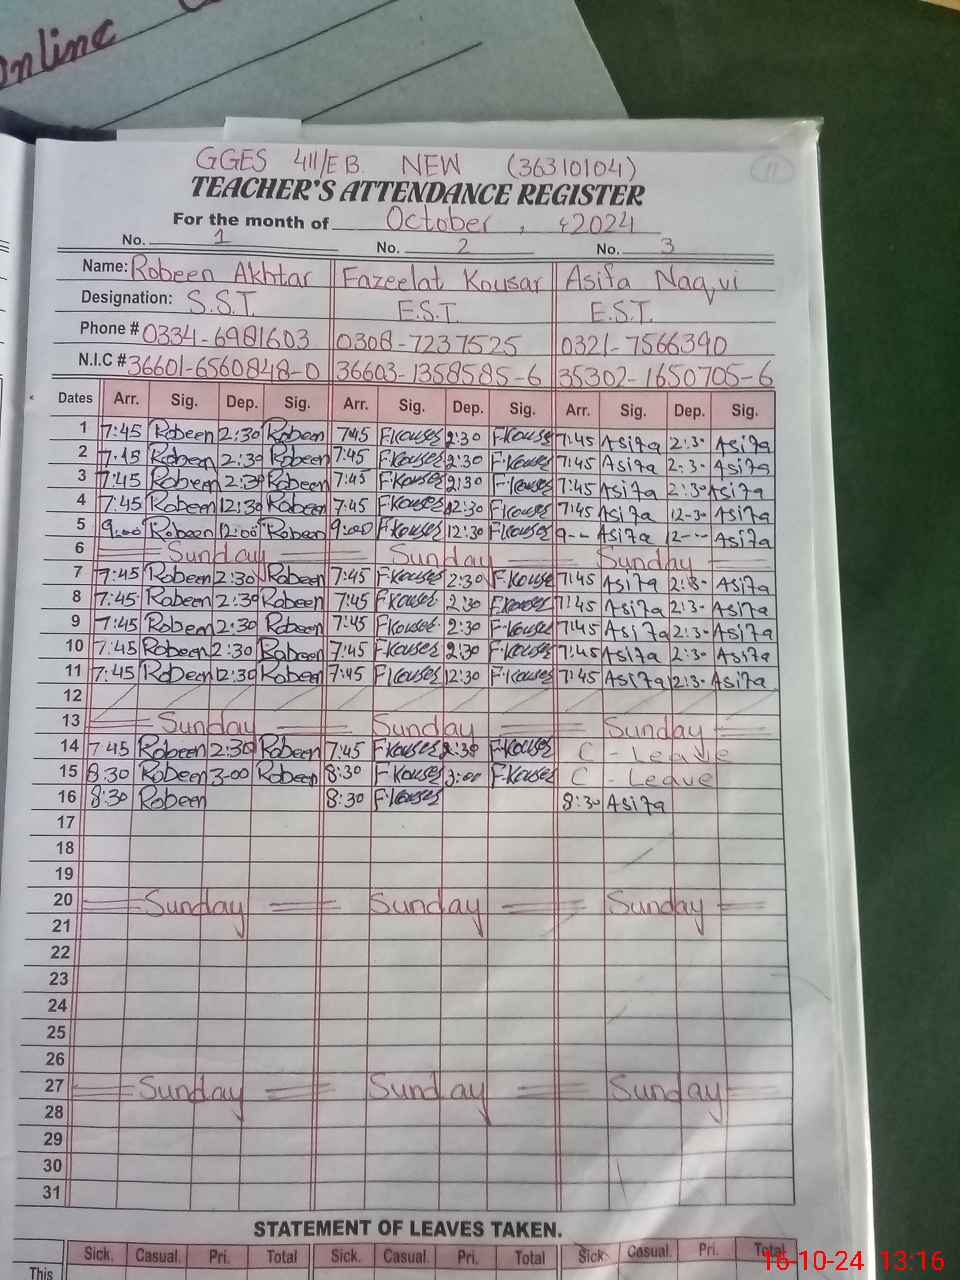 Online
GGES 411/EB. NEW (36310104)
11
TEACHER'S ATTENDANCE REGISTER
For the month of October, 2024
No. 1 No. 2 No. 3
Name: Robeen Akhtar Fazeelat Kousar Asifa Naqvi
Designation: S.S.T. E.S.T. E.S.T.
Phone # 0334-6981603 0308-7237525 0321-7566390
N.I.C # 36601-6560848-0 36603-1358585-6 35302-1650705-6
Dates Arr. Sig. Dep. Sig. Arr. Sig. Dep. Sig. Arr. Sig. Dep. Sig.
1 7:45 Robeen 2:30 Robeen 7:45 F.Kouser 2:30 F.Kouser 7:45 Asifa 2:3- Asifa
2 7:45 Robeen 2:30 Robeen 7:45 F.Kouser 2:30 F.Kouser 7:45 Asifa 2:3- Asifa
3 7:45 Robeen 2:30 Robeen 7:45 F.Kouser 2:30 F.Kouser 7:45 Asifa 2:30 Asifa
4 7:45 Robeen 12:30 Robeen 7:45 F.Kouser 12:30 F.Kouser 7:45 Asifa 12-30 Asifa
5 9:00 Robeen 12:00 Robeen 9:00 F.Kouser 12:30 F.Kouser 9-- Asifa 12-- Asifa
6 Sunday Sunday Sunday
7 7:45 Robeen 2:30 Robeen 7:45 F.Kouser 2:30 F.Kouser 7:45 Asifa 2:3- Asifa
8 7:45 Robeen 2:30 Robeen 7:45 F.Kouser 2:30 F.Kouser 7:45 Asifa 2:3- Asifa
9 7:45 Robeen 2:30 Robeen 7:45 F.Kouser 2:30 F.Kouser 7:45 Asifa 2:3- Asifa
10 7:45 Robeen 2:30 Robeen 7:45 F.Kouser 2:30 F.Kouser 7:45 Asifa 2:3- Asifa
11 7:45 Robeen 12:30 Robeen 7:45 F.Kouser 12:30 F.Kouser 7:45 Asifa 12:3- Asifa
12
13 Sunday Sunday Sunday
14 7:45 Robeen 2:30 Robeen 7:45 F.Kouser 2:30 F.Kouser C - Leave
15 8:30 Robeen 3:00 Robeen 8:30 F.Kouser 3:00 F.Kouser C - Leave
16 8:30 Robeen 8:30 F.Kouser 8:30 Asifa
17
18
19
20 Sunday Sunday Sunday
21
22
23
24
25
26
27 Sunday Sunday Sunday
28
29
30
31
STATEMENT OF LEAVES TAKEN.
Sick. Casual. Pri. Total Sick. Casual. Pri. Total Sick. Casual. Pri. Total
This
16-10-24 13:16